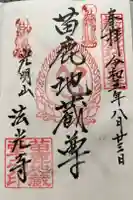 奉拝 令和五年八月廿三日
苗鹿地蔵尊
光明山
法光寺